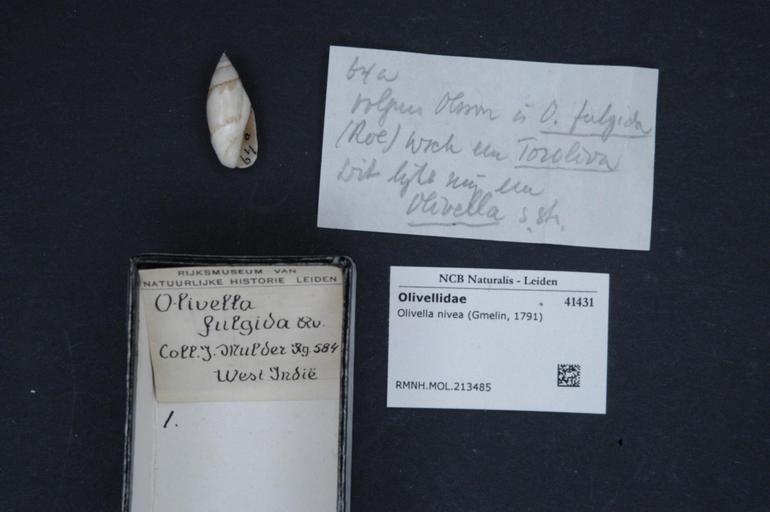 64a
64a
volgens Olsson is O. fulgida
(Rve) wsch een Toroliva
dit lijkt mij een
Olivella s. str.
RIJKSMUSEUM VAN
NATUURLIJKE HISTORIE LEIDEN
Olivella
fulgida Rv.
Coll. J. Mulder Rg. 584
West Indië
1.
NCB Naturalis - Leiden
Olivellidae 41431
Olivella nivea (Gmelin, 1791)
RMNH.MOL.213485